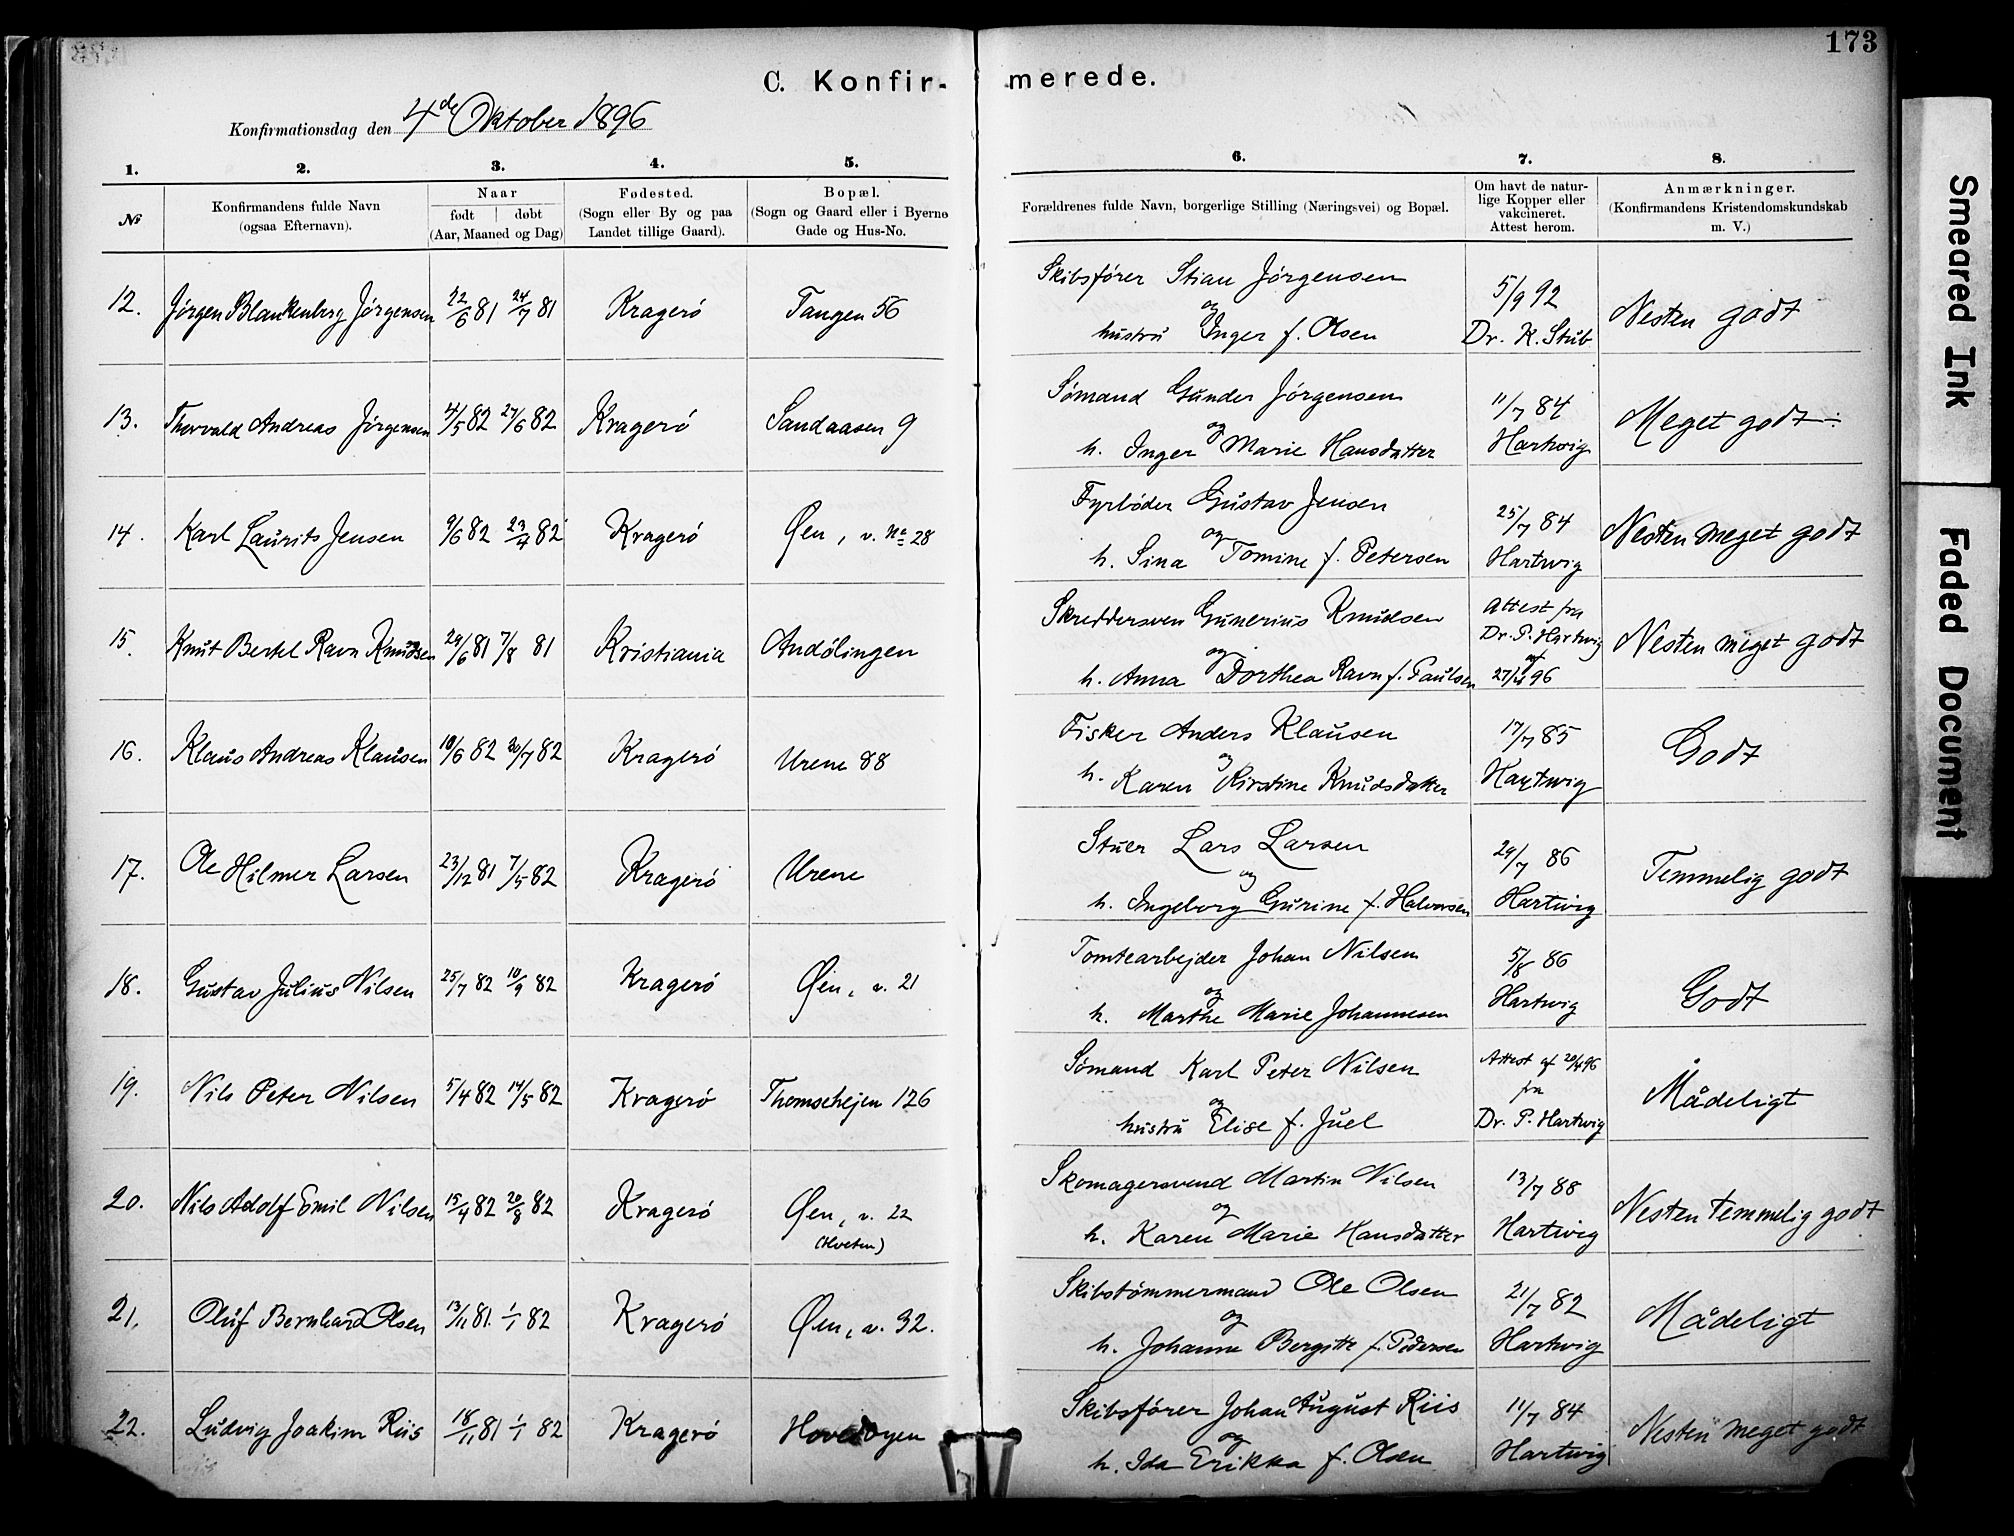 173
C. Konfirmerede.
Konfirmationsdag den 4de Oktober 1896
1. 2. 3. 4. 5. 6. 7. 8.
№ | Konfirmandens fulde Navn (ogsaa Efternavn). | Naar født | døbt (Aar, Maaned og Dag) | Fødested. (Sogn eller By og paa Landet tillige Gaard). | Bopæl. (Sogn og Gaard eller i Byerne Gade og Hus-No. | Forældrenes fulde Navn, borgerlige Stilling (Næringsvei) og Bopæl. | Om havt de naturlige Kopper eller vakcineret. Attest herom. | Anmærkninger. (Konfirmandens Kristendomskundskab m. V.)
12. Jørgen Blankenberg Jørgensen 22/6 81 24/7 81 Kragerö Tangen 56
Skibsfører Stian Jørgensen
og
hustru Inger f. Olsen
5/9 92
Dr. K. Stub
Nesten godt
13. Thorvald Andreas Jörgensen 4/5 82 27/6 82 Kragerö Sandaasen 9
Sömand Gunder Jörgensen
og
h. Inger Marie Hansdatter
11/7 84
Hartwig
Meget godt
14. Karl Laurits Jensen 9/6 82 23/7 82 Kragerö Øen, v. No 28
Fyrböder Gustav Jensen
og
h. Sina Tomine f. Petersen
25/7 84
Hartwig
Nesten meget godt
15. Knut Bertel Ravn Knudsen 29/6 81 7/8 81 Kristiania Andölingen
Skreddersven Gunerius Knudsen
og
h. Anna Dorthea Ravn f. Paulsen
Attest fra
Dr. P. Hartwig
af
96
Nesten meget godt
16. Klaus Andreas Klausen 10/6 82 20/7 82 Kragerö Urene 88
Fisker Anders Klausen
og
h. Karen Kirstine Knudsdatter
17/7 85
Hartwig
Godt
17. Ole Hilmer Larsen 23/12 81 7/5 82 Kragerö Urene
Stuer Lars Larsen
og
h. Ingeborg Gurine f. Halvorsen
29/7 86
Hartwig
Temmelig godt
18. Gustav Julius Nilsen 25/7 82 10/9 82 Kragerö Øen, v. 21
Tomtearbejder Johan Nilsen
og
h. Marthe Marie Johannesen
5/8 86
Hartwig
Godt
19. Nils Peter Nilsen 5/4 82 14/5 82 Kragerö Thomsehejen 126
Sömand Karl Peter Nilsen
og
hustru Elise f. Juel
Attest af 20/4 96
fra
Dr. P. Hartwig
Mådeligt
20. Nils Adolf Emil Nilsen 15/4 82 20/8 82 Kragerö Øen, v. 22
(Hveten)
Skomagersvend Martin Nilsen
og
h. Karen Marie Hansdatter
13/7 88
Hartwig
Nesten temmelig godt
21. Oluf Bernhard Olsen 13/11 81. 1/1 82 Kragerö Øen, v. 32.
Skibstömmermand Ole Olsen
og
h. Johanne Bergitte f. Pedersen
21/7 82
Hartwig
Mådeligt
22. Ludvig Joakim Riis 18/11 81 1/1 82 Kragerö
Skibsfører Johan August Riis
og
h. Ida Erikka f. Olsen
11/7 84
Hartwig
Nesten meget godt
Smeared Ink
Faded Document